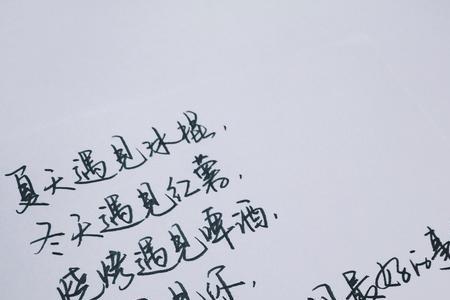 夏天遇见冰棍，
冬天遇见红薯，
烧烤遇见啤酒，
见你，
最好的事